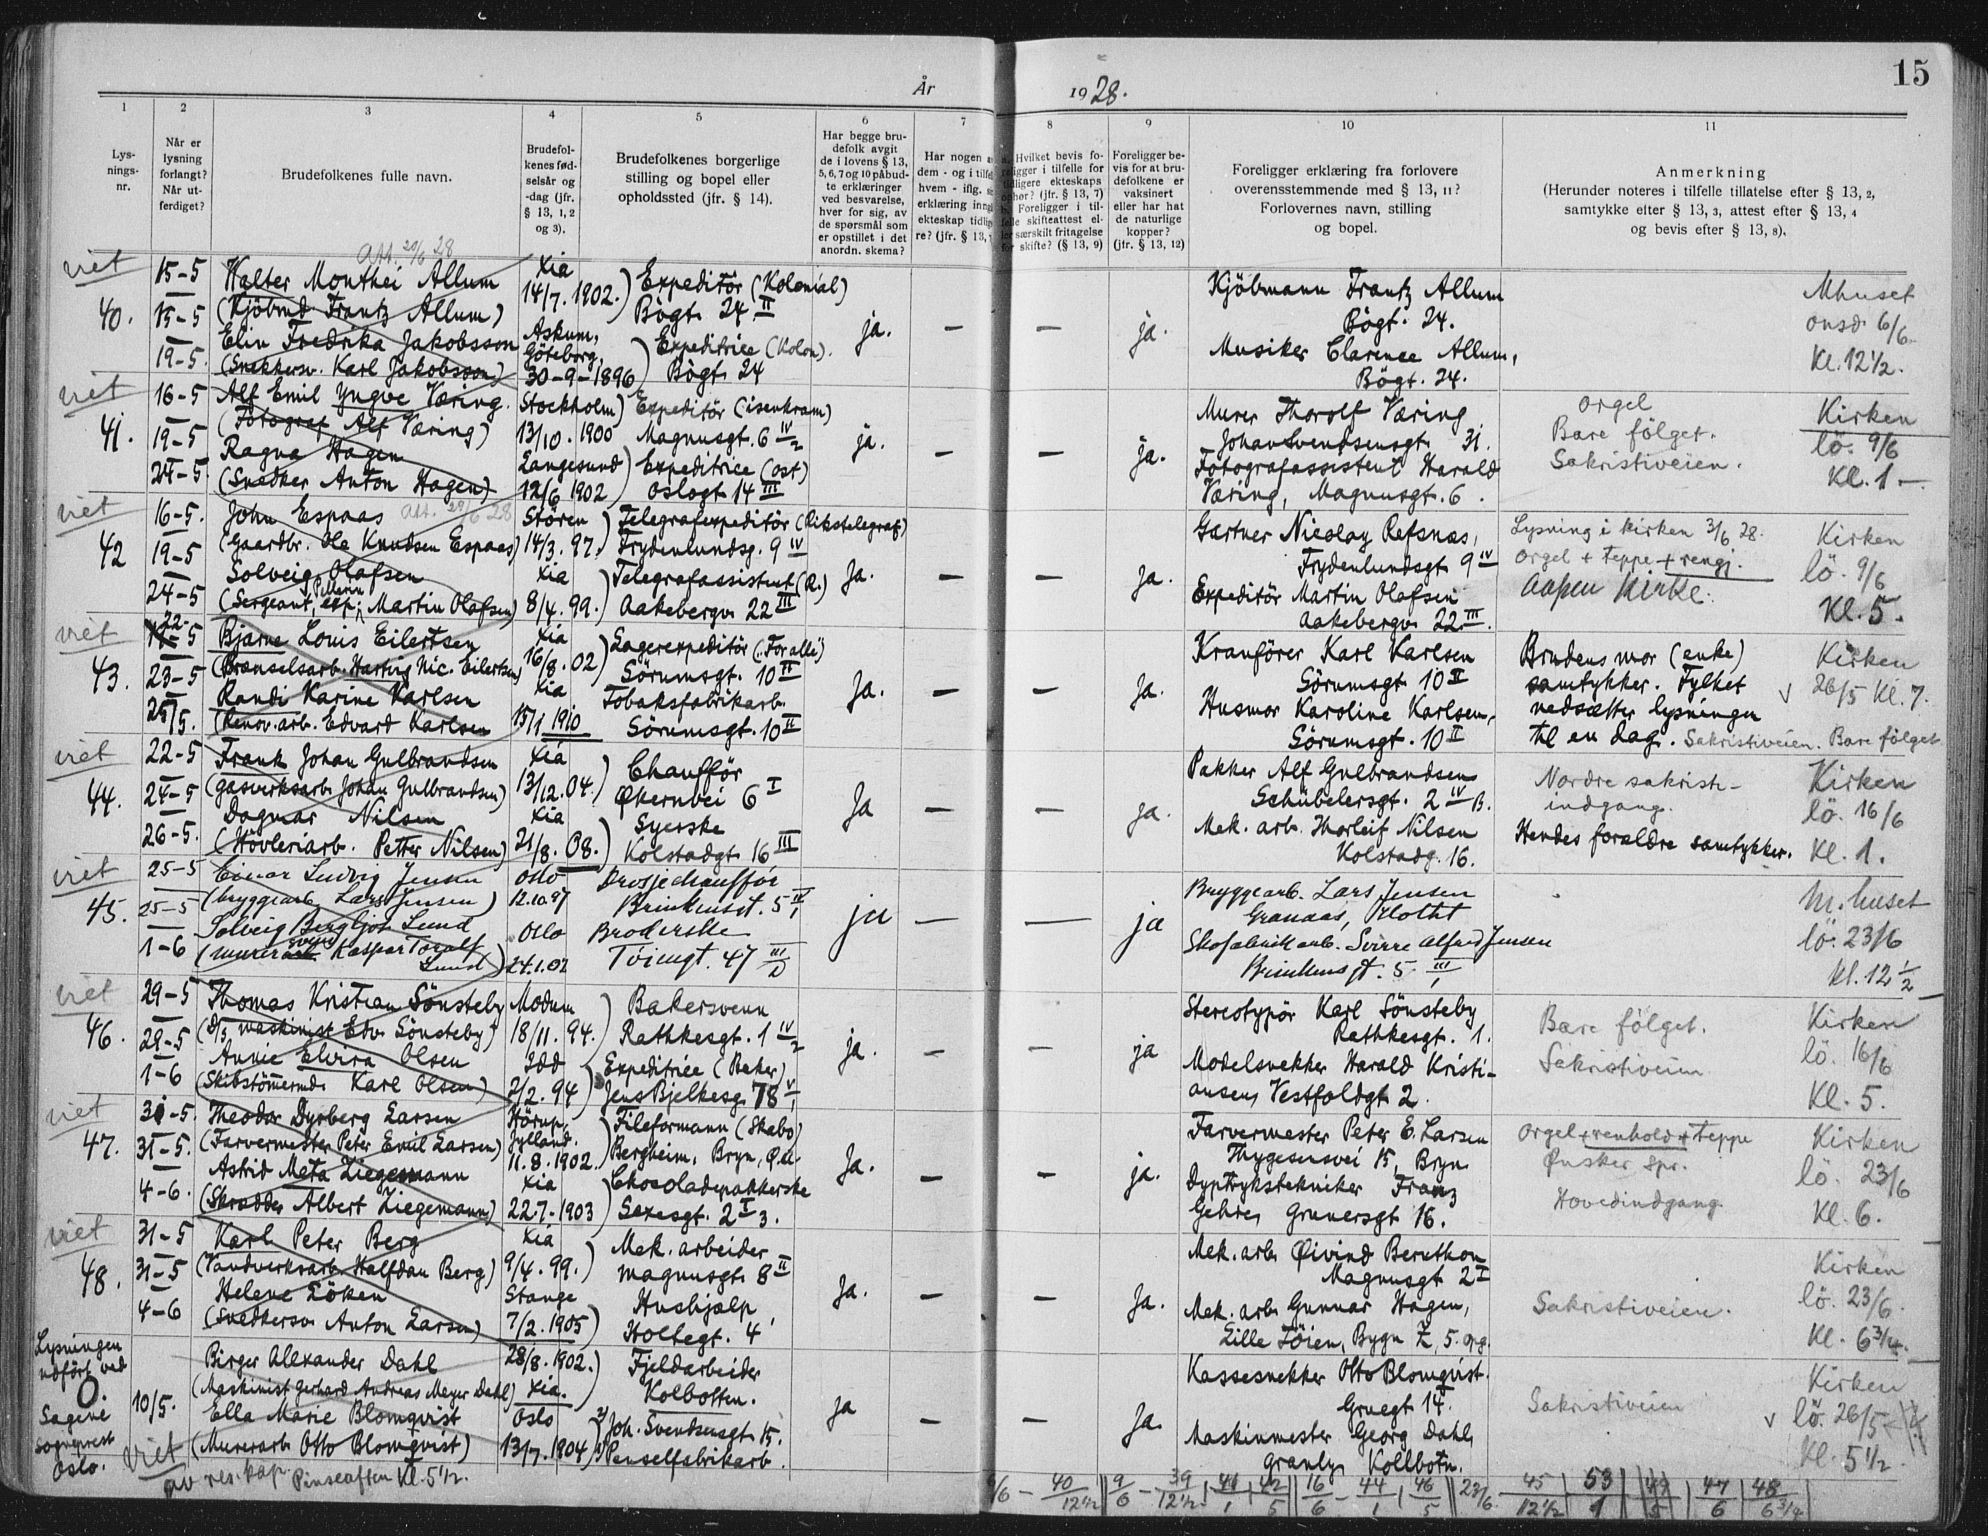 År
1928.
15
1
2
3
4
5
6
7
8
9
10
11
Lys-
nings-
nr.
Når er
lysning
forlangt?
Når ut-
ferdiget?
Brudefolkenes fulle navn.
Brudefol-
kenes fød-
selsår og
-dag (jfr.
§ 13, 1, 2
og 3).
Brudefolkenes borgerlige
stilling og bopel eller
opholdssted (jfr. § 14).
Har begge bru-
defolk avgit
de i lovens § 13,
5, 6, 7 og 10 påbud-
te erklæringer
ved besvarelse,
hver for sig, av
de spørsmål som
er opstillet i det
anordn. skema?
Har nogen
dem - og i
hvem - iflg.
erklæring
ekteskap
re? (jfr. § 13,
Hvilket bevis fo-
i tilfelle for
ekteskaps
(jfr. § 13, 7)
Foreligger i til-
skifteattest el-
særskilt fritagelse
skifte? (§ 13, 9)
Foreligger be-
vis for at bru-
defolkene er
vaksinert
eller har hat
de naturlige
kopper?
(jfr. § 13, 12)
Foreligger erklæring fra forlovere
overensstemmende med § 13, 11?
Forlovernes navn, stilling
og bopel.
Anmerkning
(Herunder noteres i tilfelle tillatelse efter § 13, 2,
samtykke efter § 13, 3, attest efter § 13, 4
og bevis efter § 13, 8).
viet
40.
15-5
15-5
19-5.
Att. 20/6 28
Walter Monthei Allum
(Kjöbmd Frantz Allum)
Elin Fredrika Jakobsson
(Snekkersv. Karl Jakobsson)
Xia
14/7. 1902.
Askum,
Göteborg,
30-9-1896
Expeditör (Kolonial)
Bögt. 24 II
Expeditrice (Kolon).
Bögt 24
ja.
—
—
ja.
Kjöbmann Frantz Allum
Bögt. 24.
Musiker Clarence Allum,
Bögt. 24.
Mhuset
onsd 6/6
Kl. 12 1/2.
viet
41.
16-5
19-5
24-5
Alf Emil Yngve Væring.
(Fotograf Alf Væring)
Ragna Hagen
(Snedker Anton Hagen)
Stockholm
13/10. 1900
Langesund
12/6 1902
Expeditör (isenkram)
Magnusgt. 6 IV/2
Expeditrice (ost)
Oslogt 14 III
ja.
—
—
ja.
Murer Thorolf Væring
Johan Svendsensgt 31.
Fotografassistent Harald
Væring, Magnusgt. 6.
Orgel
Bare följet.
Sakristiveien.
Kirken
lö. 9/6
Kl. 1 —
viet
42
16-5.
19-5
24-5
John Espaas Att. 20/6 28
(Gaardbr. Ole Knudsen Espaas)
Solveig Olafsen
(Sergeant, Martin Olafsen)
Stören
14/3. 97.
Xia
8/4. 99.
Telegrafexpeditör (Rikstelegraf)
Frydenlundsg. 9 IV
Telegrafassistent (R.)
Aakebergv. 22 III
Ja.
—
—
Ja.
Gartner Nicolay Refsnæs,
Frydenlundsgt 9 IV
Expeditör Martin Olafsen
Aakebergv. 22 III.
Lysning i kirken 3/6 28.
Orgel + teppe + rengj.
Aapen Kirke.
Kirken
lö. 9/6
Kl. 5.
viet
43.
22-5
23-5
25/5.
Bjarne Louis Eilertsen
(Brænselsarb. Hartvig Nic. Eilertsen)
Randi Karine Karlsen
(Renov. arb. Edvard Karlsen
Xia
16/8. 02
Xia
15/1 1910
Lagerexpeditör (Foralle)
Sörumsgt. 10 II
Tobaksfabrikarb.
Sörumsgt. 10 II
Ja.
—
—
Ja.
Kranförer Karl Karlsen
Sörumsgt 10 II
Husmor Karoline Karlsen,
Sörumsgt. 10 II
Brudens mor (enke)
samtykker. Fylket
nedsætter lysningen
til en dag. Sakristiveien. Bare följet
Kirken
v 26/5 Kl. 7.
viet
44.
22-5
24-5
26-5.
Frank Johan Gulbrandsen
(Gasverksarb. Johan Gulbrandsen)
Dagmar Nilsen
(Hövleriarb. Petter Nilsen)
Xia
13/12. 04.
Xia
21/8. 08.
Chaufför
Økernvei 6 I
Syerske
Kolstadgt 16 III
Ja
—
—
ja.
Pakker Alf Gulbrandsen
Schübelersgt. 2 IV B.
Mek. arb. Thorleif Nilsen
Kolstadg. 16.
Nordre sakristi-
indgang.
Hendes forældre samtykker.
Kirken
lö. 16/6
Kl. 1.
viet
45.
25-5
25-5
1-6
Einar Ludvig Jensen
(bryggearb. Lars Jensen)
Solveig Bergljot Lund
(murersvend Kaspar Toralf
Lund)
Oslo
12.10.97
Oslo
24.1.02
Drosjechaufför
Brinkensgt. 5 II/1
Broderske
Töiengt. 47 III/D
ja
—
—
ja
Bryggearb. Lars Jensen
Granaas, Kloftt
Skofabrikarb. Sverre Alfred Jensen
Brinkensgt. 5 III/1
M.huset
lö. 23/6
Kl. 12 1/2
viet
46.
29-5
29-5
1-6
Thomas Kristian Sönsteby
(D/s maskinist Edv. Sönsteby)
Annie Elvira Olsen
(Skibstömmermd. Karl Olsen)
Modum
18/11. 94.
Idd
2/2. 94
Bakersvenn
Rathkesgt. 1 IV/2
Expeditrice (Baker)
Jens Bjelkesg. 78 V/1
ja.
—
—
ja
Stereotypör Karl Sönsteby
Rathkesgt. 1.
Modelsnekker Harald Kristi-
ansen, Vestfoldgt 2.
Bare följet.
Sakristiveien
Kirken
lö. 16/6
Kl. 5.
viet
47.
31-5.
31-5.
4-6.
Theodor Dyrberg Larsen
(Farvermester Peter Emil Larsen)
Astrid Meta Ziegemann
(Skrædder Albert Ziegemann)
Hörup,
Jylland.
11.8.1902.
Xia
22.7-1903
Fileformann (Skabo)
Bergheim, Bryn, Ø.A.
Chocoladepakkerske
Sexesgt. 2 I 3.
Ja.
—
—
ja.
Farvermester Peter E. Larsen
Thygesensvei 15, Bryn
Dyptrykstekniker Franz
Gehre, Grunersgt 16.
Orgel + renhold + teppe
Ønsker spr.
Hovedindgang
Kirken
lö. 23/6
Kl. 6.
viet
48.
31-5
31-5
4-6
Karl Peter Berg
(Vandverksarb. Halfdan Berg)
Helene Löken
(Snedkersv. Anton Larsen)
Xia
9/4. 99.
Stange
7/2. 1905
Mek. arbeider
Magnusgt 8 II
Hushjælp,
Holtegt. 4
Ja.
—
—
Ja.
Mek. arb. Øivind Bernthon
Magnusgt 2 I
Mek. arb. Gunnar Hagen,
Lille Töien, Bygn Z, 5. opg.
Sakristiveien.
Kirken
lö. 23/6.
Kl. 6 3/4.
Lysningen
utfört ved
O.
Sagene
Sogneprest
Oslo.
10/5.
Birger Alexander Dahl
(Maskinist Gerhard Andreas Meyer Dahl)
Ella Marie Blomqvist
(Murerarb. Otto Blomqvist)
28/8. 1902.
Xia.
Oslo
13/7. 1904
Fjeldarbeider
Kolbotten.
2) Joh. Svendsensgt 15.
1) Penselfabrikarb.
Ja
—
—
Ja.
Kassesnekker Otto Blomqvist.
Gruegt 14.
Maskinmester Georg Dahl,
Granly, Kolbotn.
Sakristiveien
Kirken
v lö. 26/5
Kl. 5 1/2.
viet
av res. kap. Pinseaften Kl. 5 1/2.
6/6 - 40/12 1/2 9/6 - 39/12 1/2 41/1 42/5 16/6 - 44/1 46/5 23/6 45/12 1/2 53/1 47/6 48/6 3/4